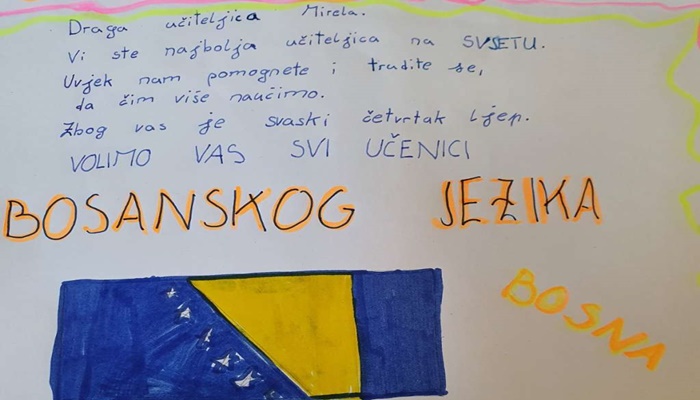 Draga učiteljica Mirela.
Vi ste najbolja učiteljica na SVIJETU.
Uvjek nam pomognete i trudite se,
da čim više naučimo.
Zbog vas je svaski četvrtak ljep.
VOLIMO VAS SVI UČENICI
BOSANSKOG JEZIKA
BOSNA